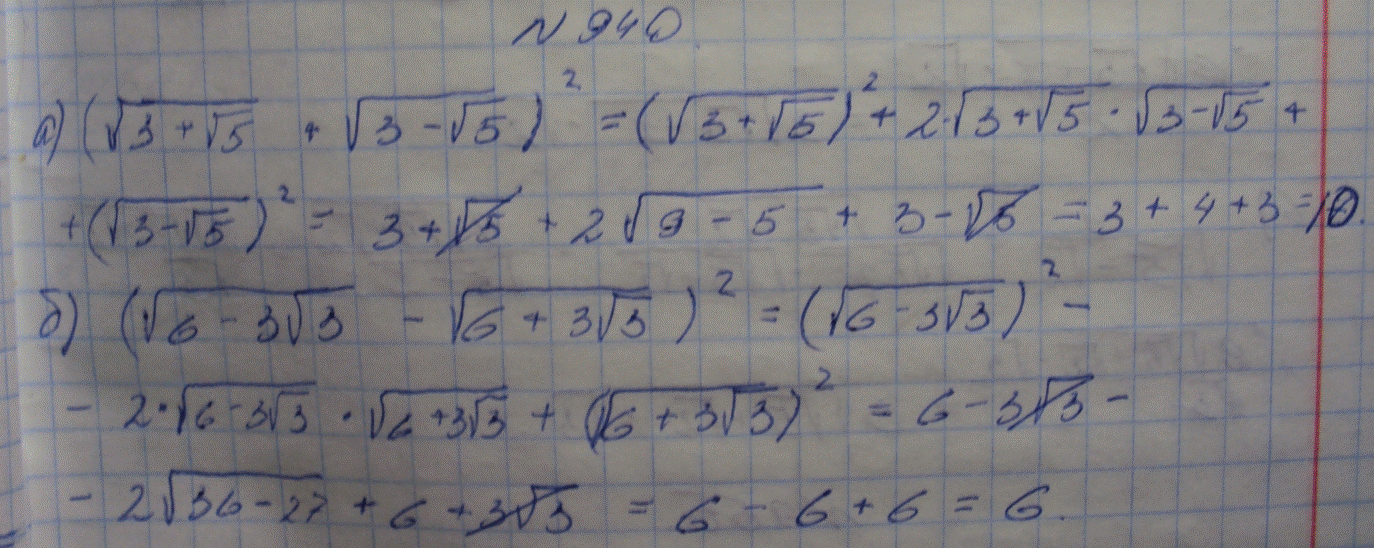 N 940
а) (√(3+√5) + √(3-√5))² = (√(3+√5))² + 2·√(3+√5) · √(3-√5) +
+ (√(3-√5))² = 3 + √5 + 2√(9-5) + 3 - √5 = 3 + 4 + 3 = 10.
б) (√(6-3√3) - √(6+3√3))² = (√(6-3√3))² -
- 2·√(6-3√3) · √(6+3√3) + (√(6+3√3))² = 6 - 3√3 -
- 2√(36-27) + 6 + 3√3 = 6 - 6 + 6 = 6.